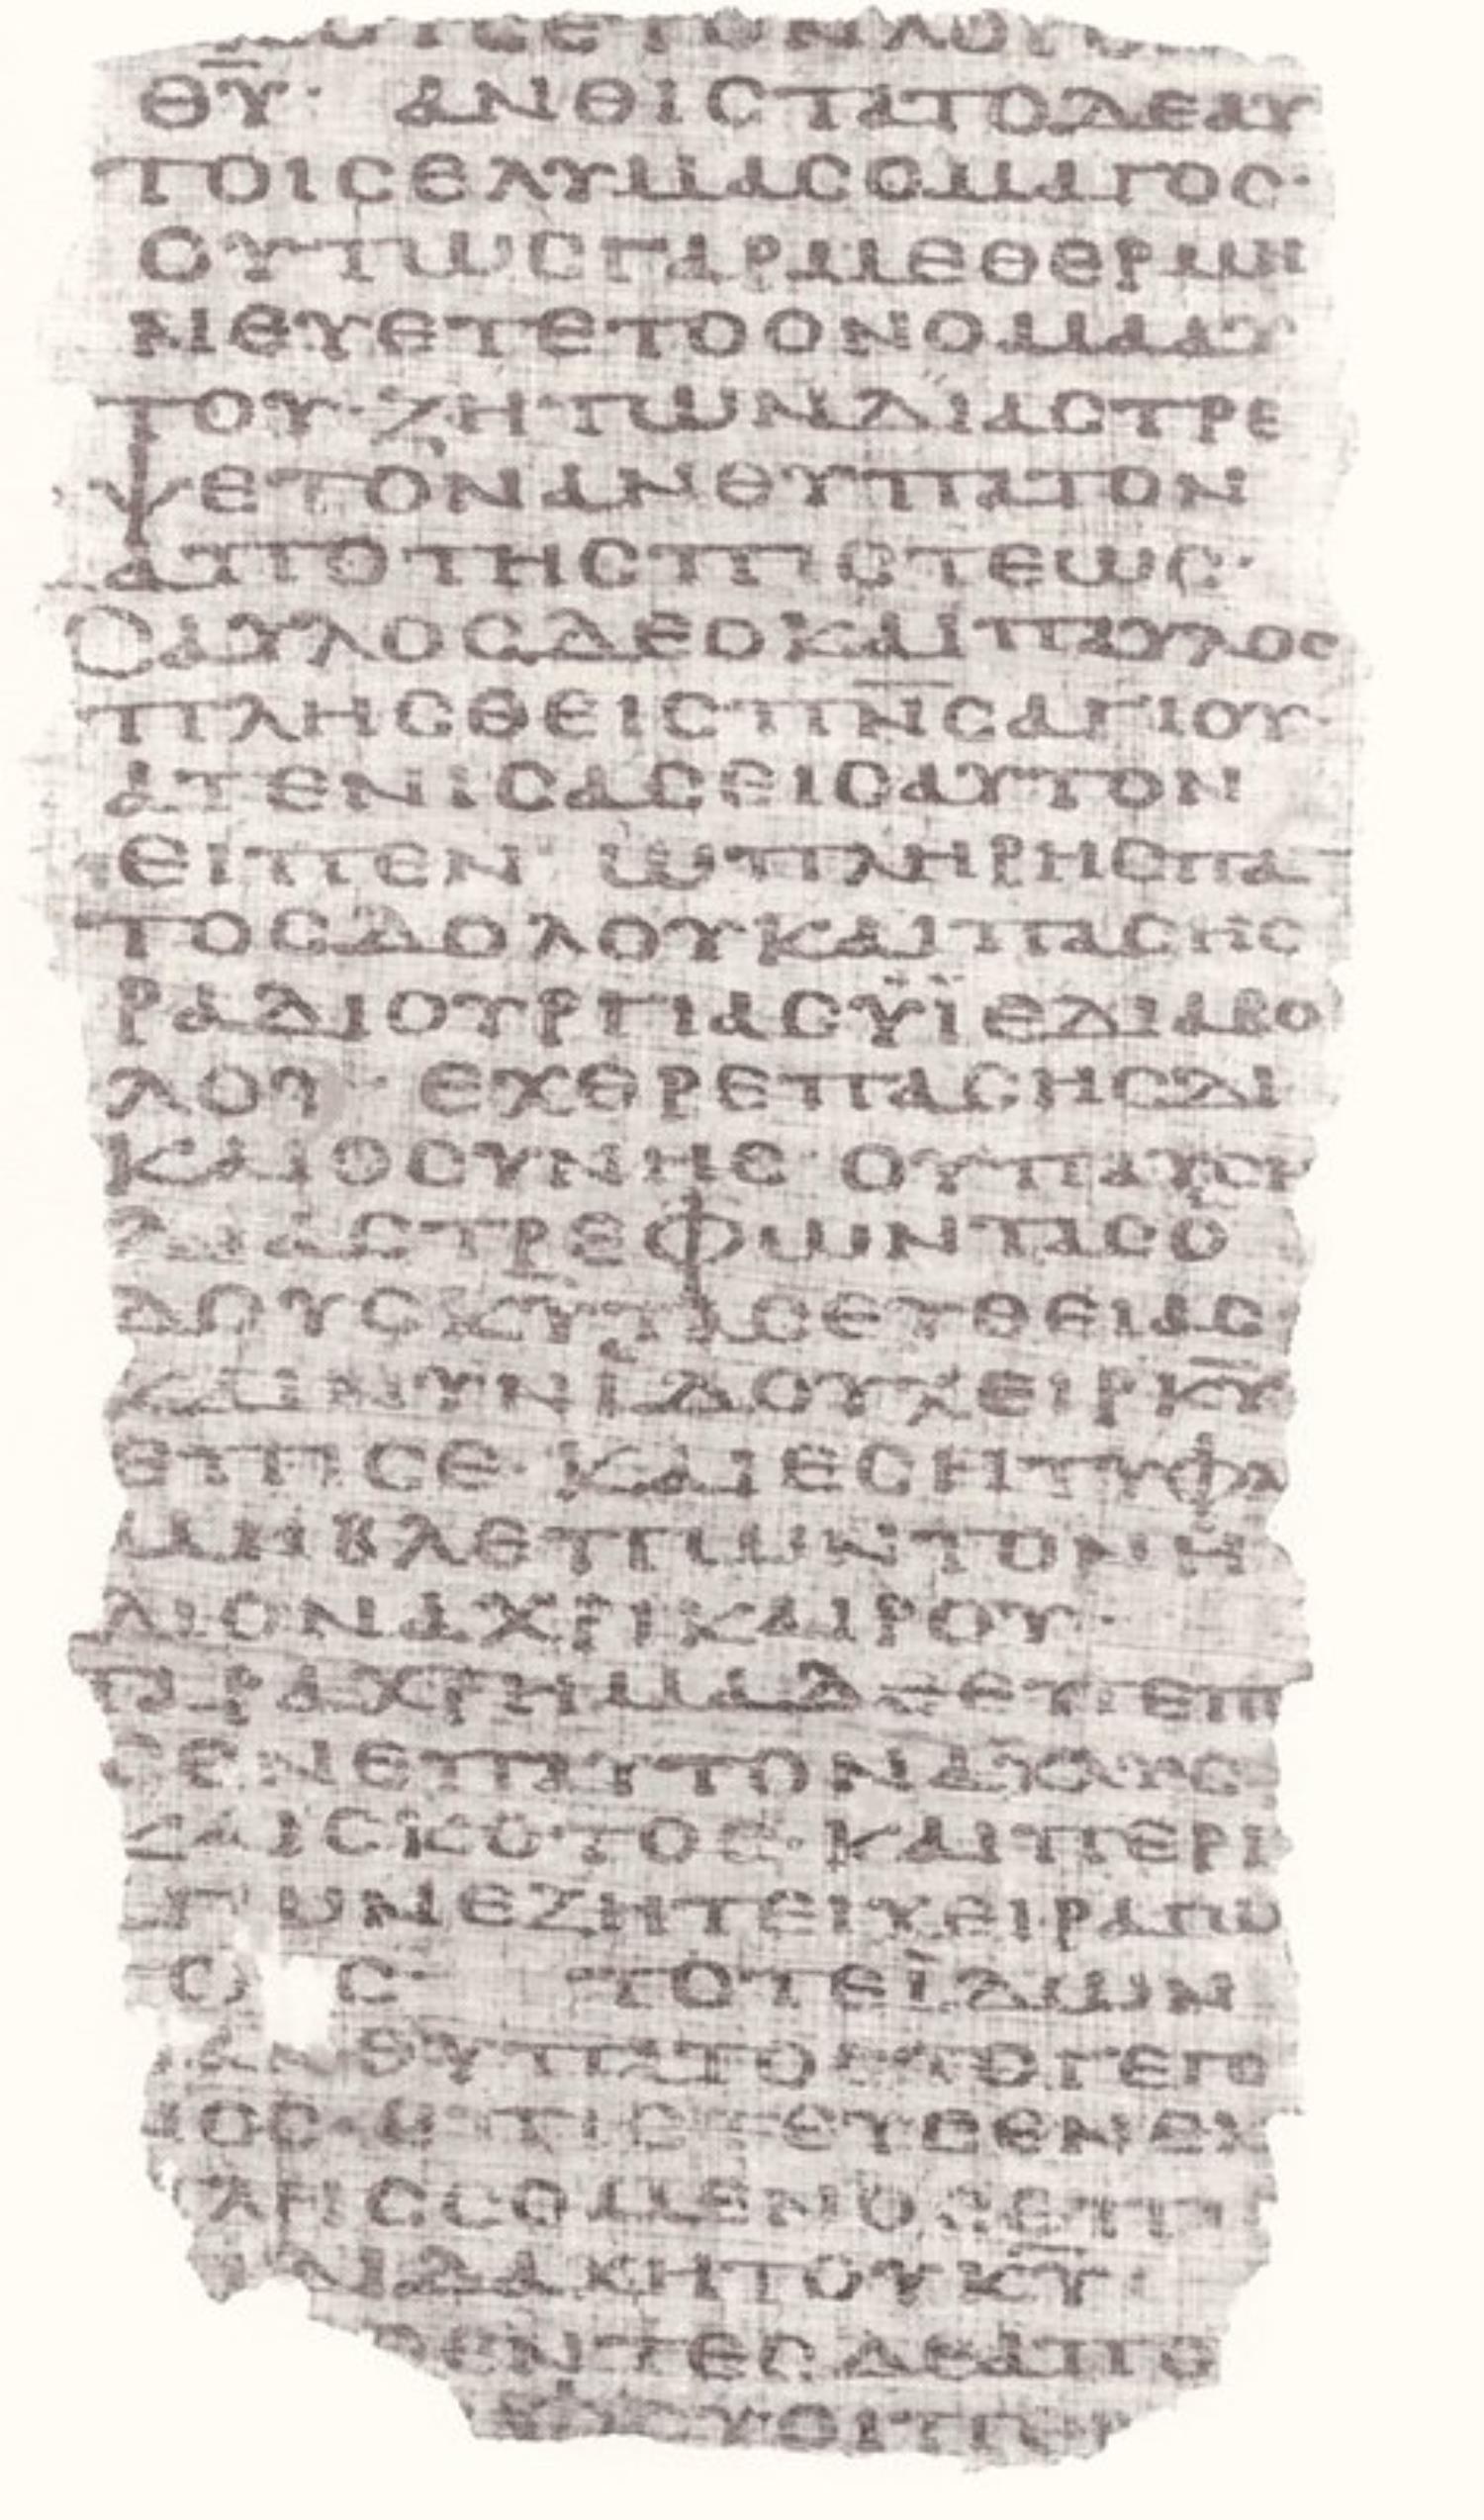 ΑΚΟΥΣΕ ΤΟΝΛΟΓΟΝ
Θ̅Υ̅· ΑΝΘΙϹΤΑΤΟΔΕΑΥ
ΤΟΙϹΕΛΥΜΑϹΟΜΑΓΟϹ·
ΟΥΤΩϹΓΑΡΜΕΘΕΡΜΗ
ΝΕΥΕΤΕΤΟΟΝΟΜΑΑΥ
ΤΟΥ·ΖΗΤΩΝΔΙΑϹΤΡΕ
ΨΕΤΟΝΑΝΘΥΠΑΤΟΝ
ΑΠΟΤΗϹΠΙϹΤΕΩϹ·
ϹΑΥΛΟϹΔΕΟΚΑΙΠΑΥΛΟϹ
ΠΛΗϹΘΕΙϹΠ̅Ν̅ϹΑΓΙΟΥ·
ΑΤΕΝΙϹΑϹΕΙϹΑΥΤΟΝ
ΕΙΠΕΝ· ΩΠΛΗΡΗϹΠΑ
ΤΟϹΔΟΛΟΥΚΑΙΠΑϹΗϹ
ΡΑΔΙΟΥΡΓΙΑϹΫΪΕΔΙΑΒΟ
ΛΟΥ· ΕΧΘΡΕΠΑϹΗϹΔΙ
ΚΑΙΟϹΥΝΗϹ·ΟΥΠΑΥϹΗ
ΔΙΑϹΤΡΕΦΩΝΤΑϹΟ
ΔΟΥϹΚ̅Υ̅ΤΑϹΕΥΘΕΙΑϹ·
ΚΑΙΝΥΝΪΔΟΥΧΕΙΡΚ̅Υ̅
ΕΠΙϹΕ·ΚΑΙΕϹΗΤΥΦΛ
ΜΗΒΛΕΠΩΝΤΟΝΗ
ΛΙΟΝΑΧΡΙΚΑΙΡΟΥ·
ΠΑΡΑΧΡΗΜΑΔΕΕΠΕΠ
ϹΕΝΕΠΑΥΤΟΝΑΧΛΥϹ
ΚΑΙϹΚΟΤΟϹ·ΚΑΙΠΕΡΙ
ΓΩΝΕΖΗΤΕΙΧΕΙΡΑΓΩ
ΟϹ· ΤΟΤΕΪΔΩΝ
ΑΝΘΥΠΑΤΟϹΤΟΓΕΓΟ
ΝΟϹ ΕΠΙϹΤΕΥϹΕΝΕΚ
ΠΛΗϹϹΟΜΕΝΟϹΕΠΙ
ΔΙΔΑΧΗΤΟΥΚ̅Υ̅·
ΘΕΝΤΕϹΔΕΑΠΟ
ΠΑΦΟΥΟΙΠΕΡ